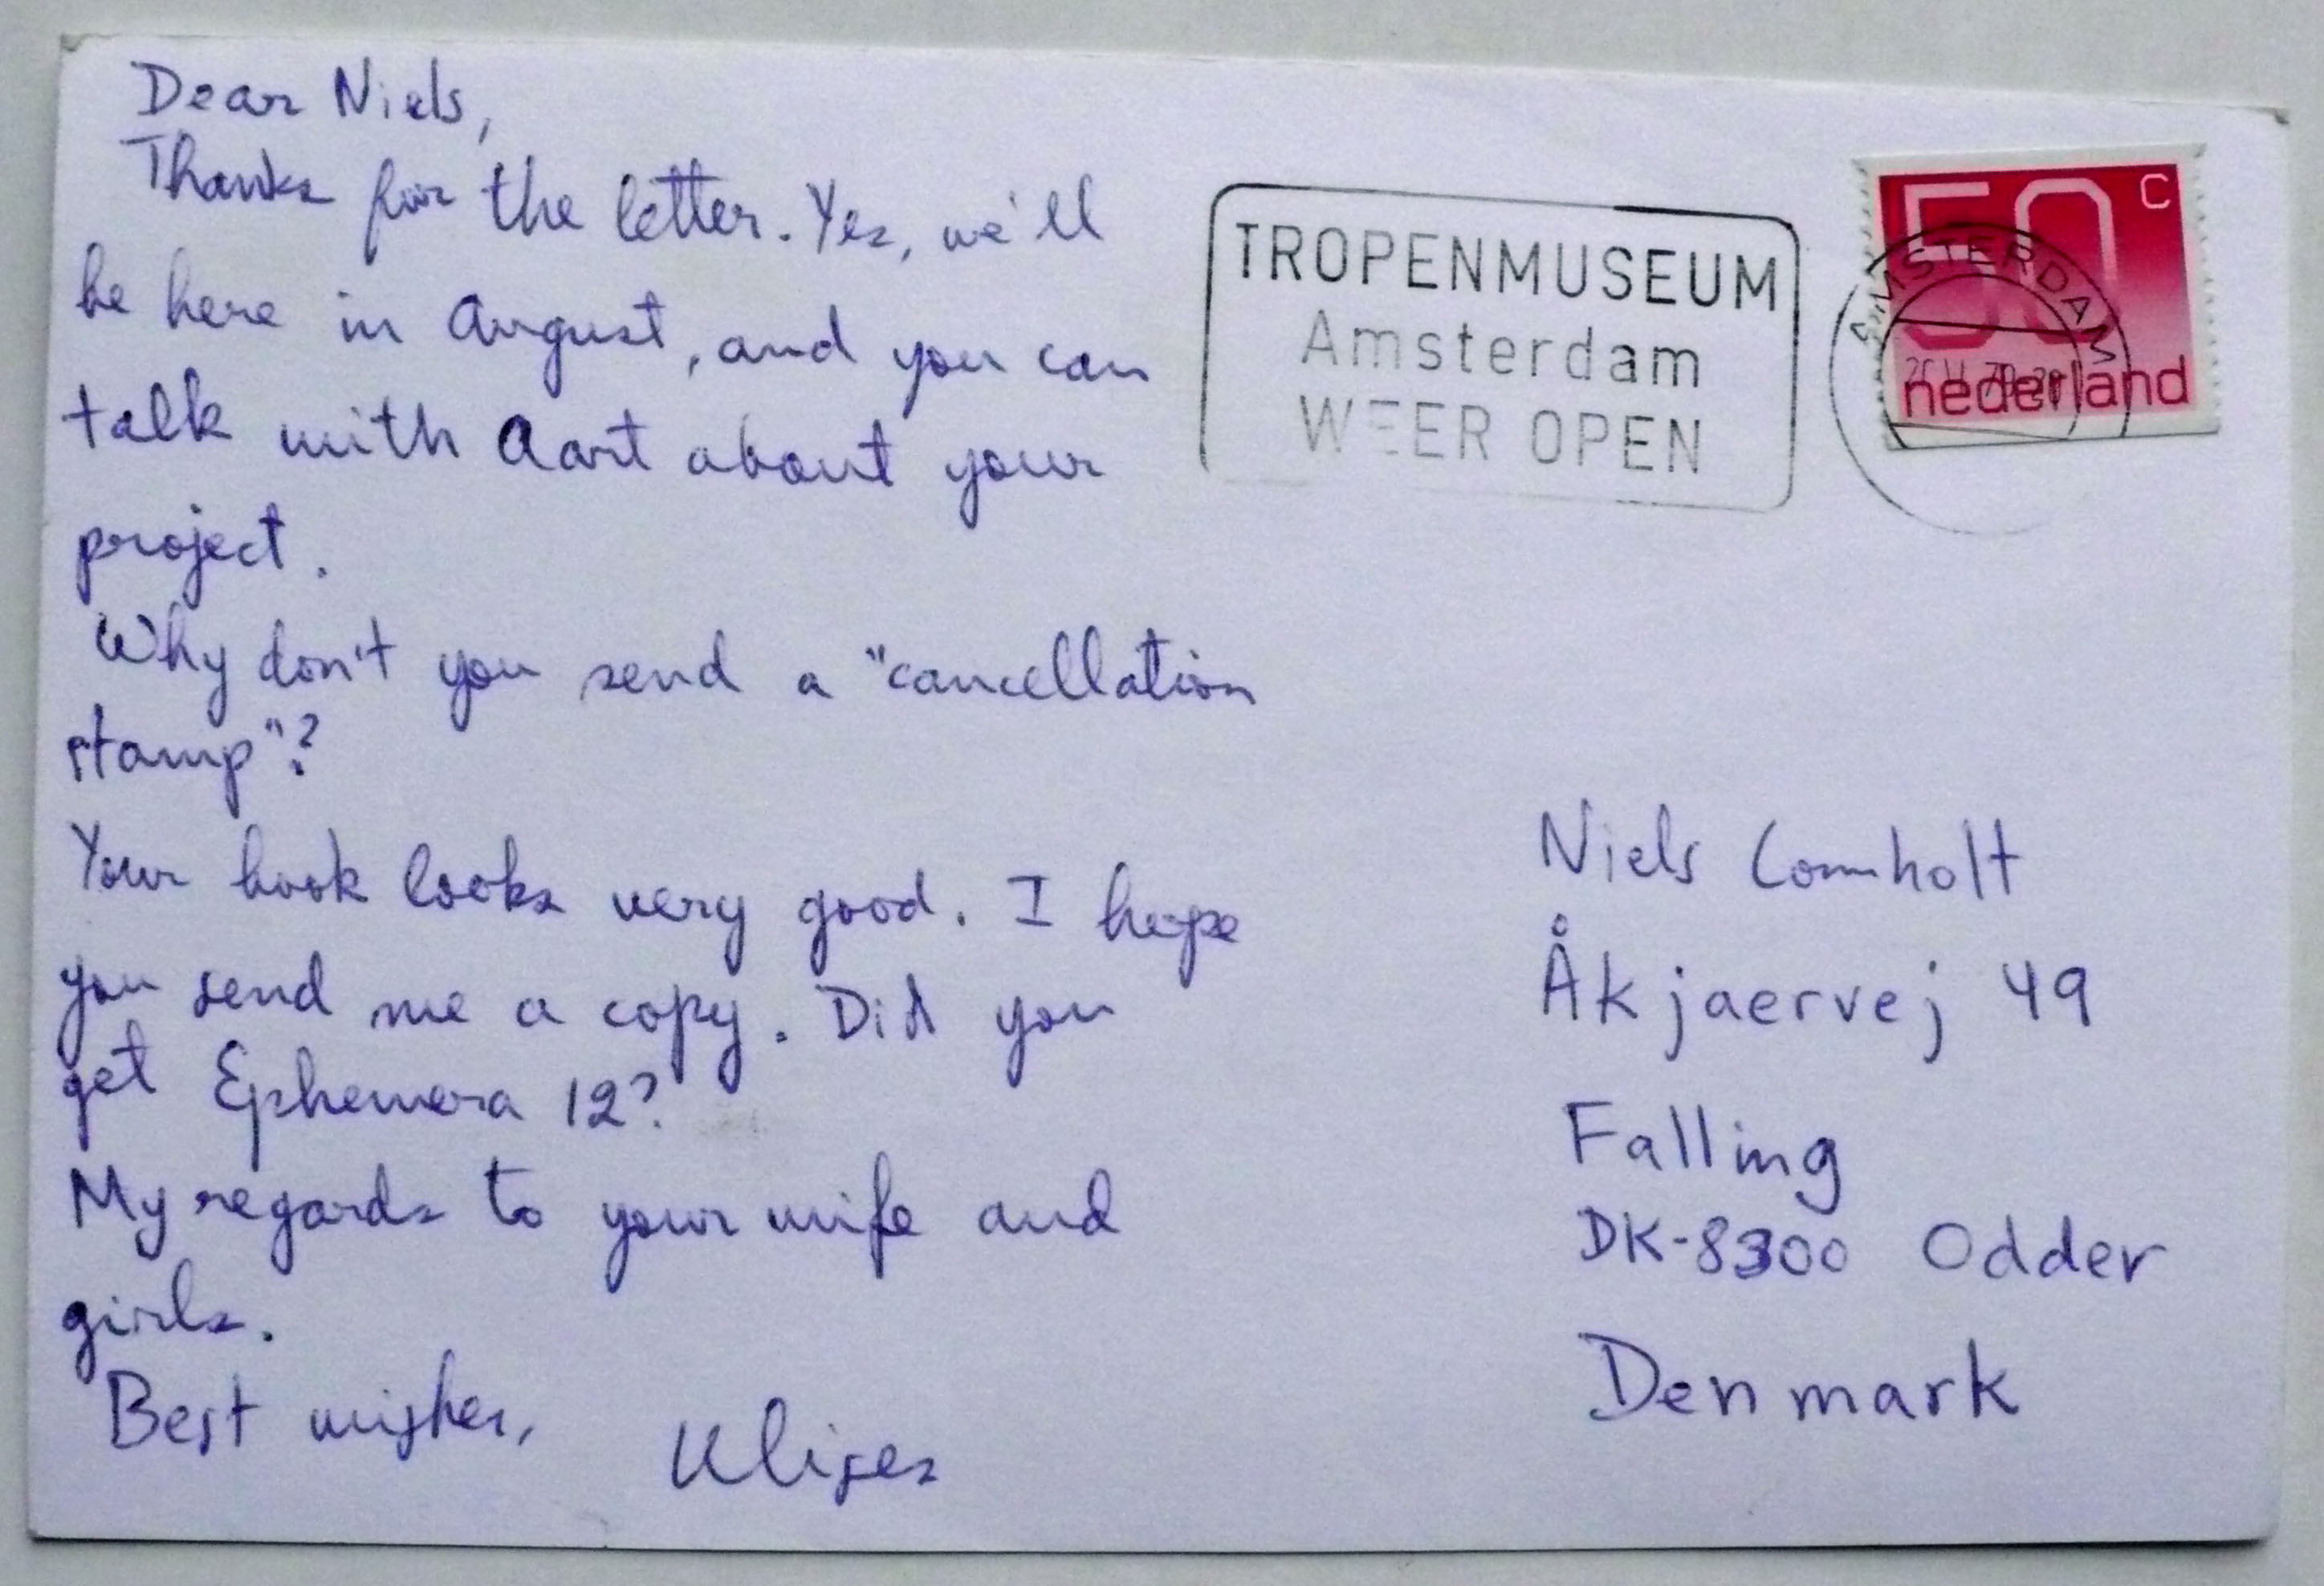 Dear Niels,
Thanks for the letter. Yes, we'll
be here in August, and you can
talk with Aart about your
project.
Why don't you send a "cancellation
stamp"?
Your book looks very good. I hope
you send me a copy. Did you
get Ephemera 12?
My regards to your wife and
girls.
Best wishes,
Ulises
TROPENMUSEUM
Amsterdam
WEER OPEN
50 c
nederland
AMSTERDAM
Niels Lomholt
Åkjaervej 49
Falling
DK-8300 Odder
Denmark